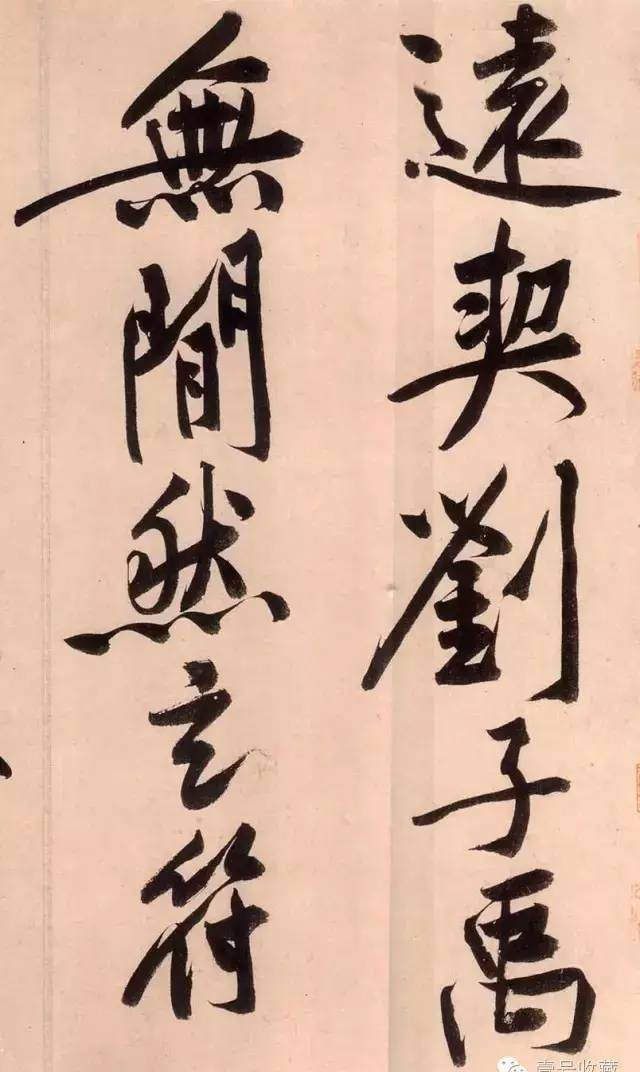 遠契劉子禹
無閒然玄符
壹号收藏